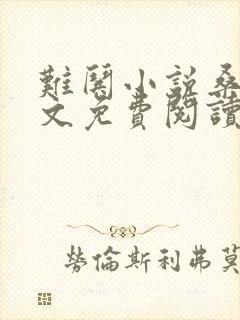 難鬨小説桑
文免費閱讀
勞倫斯利弗莫